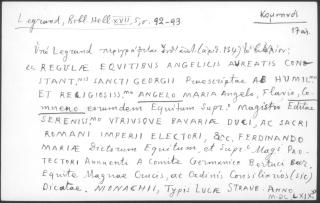 Legrand, Bibl. Hell. XVII, 5, σ. 92-93
Κομνηνός
17 αι.
Legrand περιγράφεται (ἀριθ. 134)
REGULÆ EQUITIBUS ANGELICIS AURATIS CONS
TANT.NIS SANCTI GEORGII Praescriptae AB HUMIL.MO
ET RELIGIOSISS.MO ANGELO MARIA Angelo, Flavio, Co-
mneno eorumdem Equitum Supr. Magistro Editae
SERENISS.MO VTRIVSQVE BAVARIÆ DVCI, AC SACRI
ROMANI IMPERII ELECTORI, &c. FERDINANDO
MARIÆ Dictorum Equitum, et Supr. Magi Pro-
TECTORI Annuente A Comite Germanico Bertuci
Equite Magnae Crucis, ac Ordinis Consiliario (sic)
Dicatae. MONACHII, Typis LUCÆ STRAVB. ANNO
M.DC.LXIX